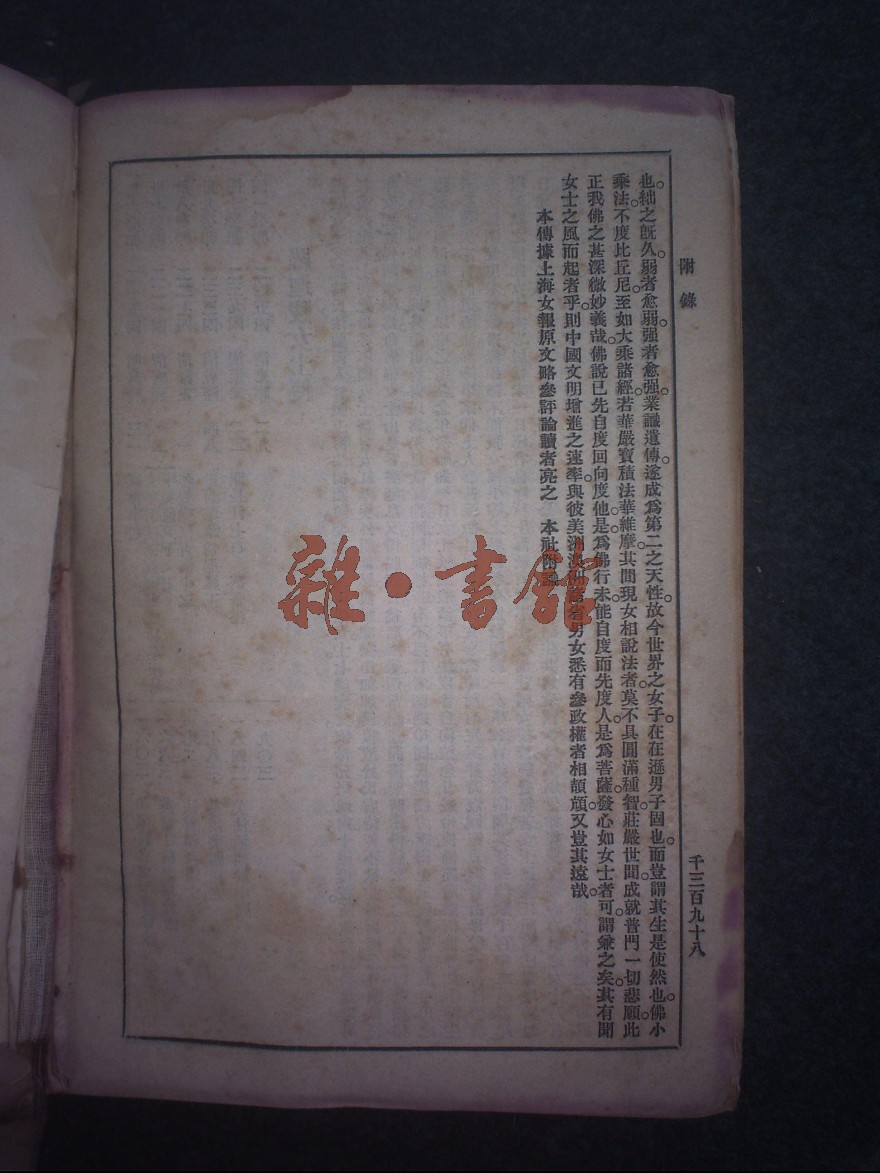 附錄
千三百九十八
也。絀之旣久。弱者愈弱。强者愈强。業識遺傳。遂成爲第二之天性。故今世界之女子。在在遜男子固也。而豈謂其生是使然也。佛小
乘法。不度比丘尼。至如大乘諸經。若華嚴寶積法華維摩。其間現女相說法者。莫不具圓滿種智。莊嚴世間。成就普門一切悲願。此
正我佛之甚深微妙義哉。佛說已先自度。回向度他。是爲佛行。未能自度。而先度人。是爲菩薩發心。如女士者。可謂兼之矣。其有聞
女士之風而起者乎。則中國文明增進之速率。與彼美洲澳洲男女悉有參政權者相頡頏。又豈其遠哉。
本傳據上海女報原文略參評論讀者亮之 本社附識
雜·書館